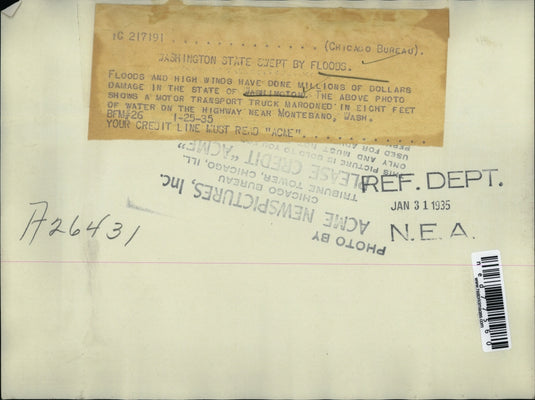 1C 217191 . . . . . . . . . . . . . . . . . . (CHICAGO BUREAU).
WASHINGTON STATE SWEPT BY FLOODS.
FLOODS AND HIGH WINDS HAVE DONE MILLIONS OF DOLLARS
DAMAGE IN THE STATE OF WASHINGTON. THE ABOVE PHOTO
SHOWS A MOTOR TRANSPORT TRUCK MAROONED IN EIGHT FEET
OF WATER ON THE HIGHWAY NEAR MONTESANO, WASH.
BFM#26 1-25-35
YOUR CREDIT LINE MUST READ "ACME"
PHOTO BY
ACME NEWSPICTURES, Inc.
CHICAGO BUREAU
TRIBUNE TOWER, CHICAGO, ILL.
PLEASE CREDIT "ACME"
THIS PICTURE IS SOLD TO YOU
ONLY AND MUST NOT
USED FOR
REF. DEPT.
JAN 31 1935
N.E.A.
A26431